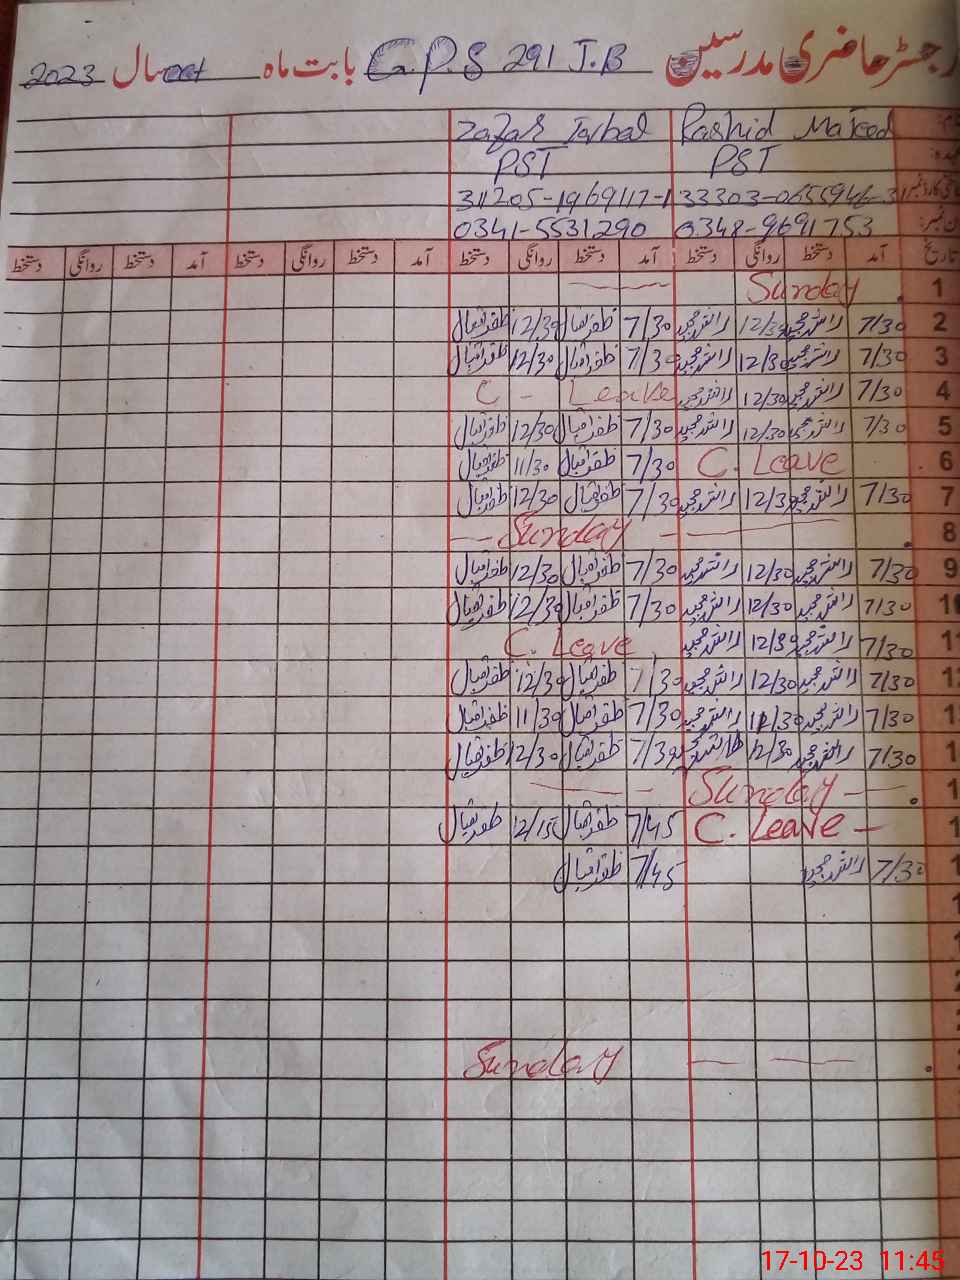 رجسٹر حاضری مدرسین G.P.S 291 J.B بابت ماہ oct سال 2023
Rashid Majeed Zafar Iqbal
PST PST
33303-0655946-3 31205-1969117-1
0348-9691753 0341-5531290
تاریخ آمد دستخط روانگی دستخط آمد دستخط روانگی دستخط آمد دستخط روانگی دستخط آمد دستخط روانگی دستخط
1 Sunday
2 7/30 راشد مجید 12/30 راشد مجید 7/30 ظفر اقبال 12/30 ظفر اقبال
3 7/30 راشد مجید 12/30 راشد مجید 7/30 ظفر اقبال 12/30 ظفر اقبال
4 7/30 راشد مجید 12/30 راشد مجید C - Leave
5 7/30 راشد مجید 12/30 راشد مجید 7/30 ظفر اقبال 12/30 ظفر اقبال
6 C. Leave 7/30 ظفر اقبال 11/30 ظفر اقبال
7 7/30 راشد مجید 12/30 راشد مجید 7/30 ظفر اقبال 12/30 ظفر اقبال
8 Sunday
9 7/30 راشد مجید 12/30 راشد مجید 7/30 ظفر اقبال 12/30 ظفر اقبال
10 7/30 راشد مجید 12/30 راشد مجید 7/30 ظفر اقبال 12/30 ظفر اقبال
11 7/30 راشد مجید 12/30 راشد مجید C. Leave
1 7/30 راشد مجید 12/30 راشد مجید 7/30 ظفر اقبال 12/30 ظفر اقبال
1 7/30 راشد مجید 11/30 راشد مجید 7/30 ظفر اقبال 11/30 ظفر اقبال
1 7/30 راشد مجید 12/30 راشد مجید 7/30 ظفر اقبال 12/30 ظفر اقبال
1 Sunday
1 C. Leave 7/45 ظفر اقبال 12/15 ظفر اقبال
1 7/30 راشد مجید 7/45 ظفر اقبال
Sunday
17-10-23 11:45